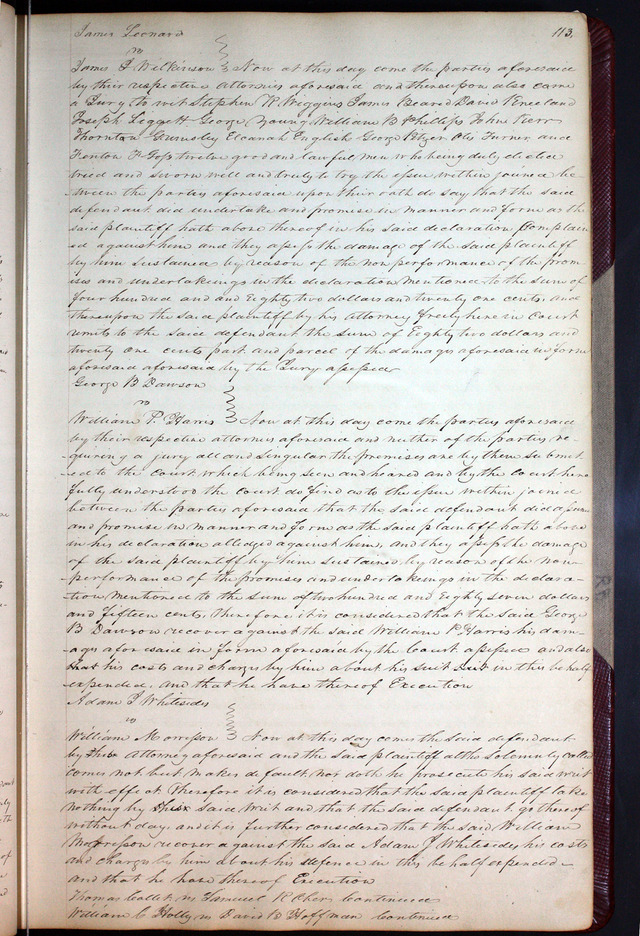 James Leonard 113.
vs
James T Wilkinson Now at this day come the parties aforesaid
by their respective attornies aforesaid and thereupon also came
a Jury to wit Stephen R Wiggins James Beard David Kneeland
Joseph Leggett George Young William B Phillips John Kerr
Thornton Grimsley Elcanah English George Pitzer Otis Turner and
Fenton F Goss twelve good and lawful men who being duly elected
tried and sworn well and truly to try the issue within joined be
tween the parties aforesaid upon their oath do say that the said
defendant did undertake and promise in manner and form as the
said plaintiff hath above thereof in his said declaration Complain
ed against him and they assess the damage of the said plaintiff
by him sustained by reason of the non performance of the prom
ises and undertakings in the declaration mentioned to the sum of
four hundred and and Eighty two dollars and twenty one cents, and
thereupon the said plaintiff by his attorney freely here in Court
remits to the said defendant the sum of Eighty two dollars and
twenty one cents part and parcel of the damages aforesaid in form
aforesaid aforesaid by the Jury assessed
George B Dawson
vs
William P. Harris Now at this day come the parties aforesaid
by their respective attornies aforesaid and neither of the parties re-
-quiring a jury all and singular the premises are by them submit
-ed to the Court which being seen and heared and by the Court here
fully understood the Court do find as to the issue within joined
between the parties aforesaid that the said defendant did assume
and promise in manner and form as the said plaintiff hath above
in his declaration alledged against him, and they assess the damage
of the said plaintiff by him sustained by reason of the non-
-performance of the promises and undertakings in the declara-
-tion mentioned to the sum of two hundred and Eighty seven dollars
and fifteen cents. Therefore it is considered that the said George
B Dawson recover against the said William P. Harris his dam-
-ages aforesaid in form aforesaid by the Court assessed and also
his costs and charges by him about his suit in this behalf
expended, and that he have thereof Execution
Adam T Whitesides
vs
William Morrison Now at this day comes the said defendant
by his attorney aforesaid and the said plaintiff altho Solemnly called
comes not but makes default, nor doth he prosecute his said writ
with effect Therefore it is considered that the said plaintiff take
nothing by his said writ and that the said defendant go thereof
without day. and it is further considered that the said William
Morrison recover against the said Adam T Whitesides his costs
and charges by him about his defence in this behalf expended-
and that he have thereof Execution
Thomas vs Samuel R Ober Continued
William C Holly vs David B Hoffman Continued